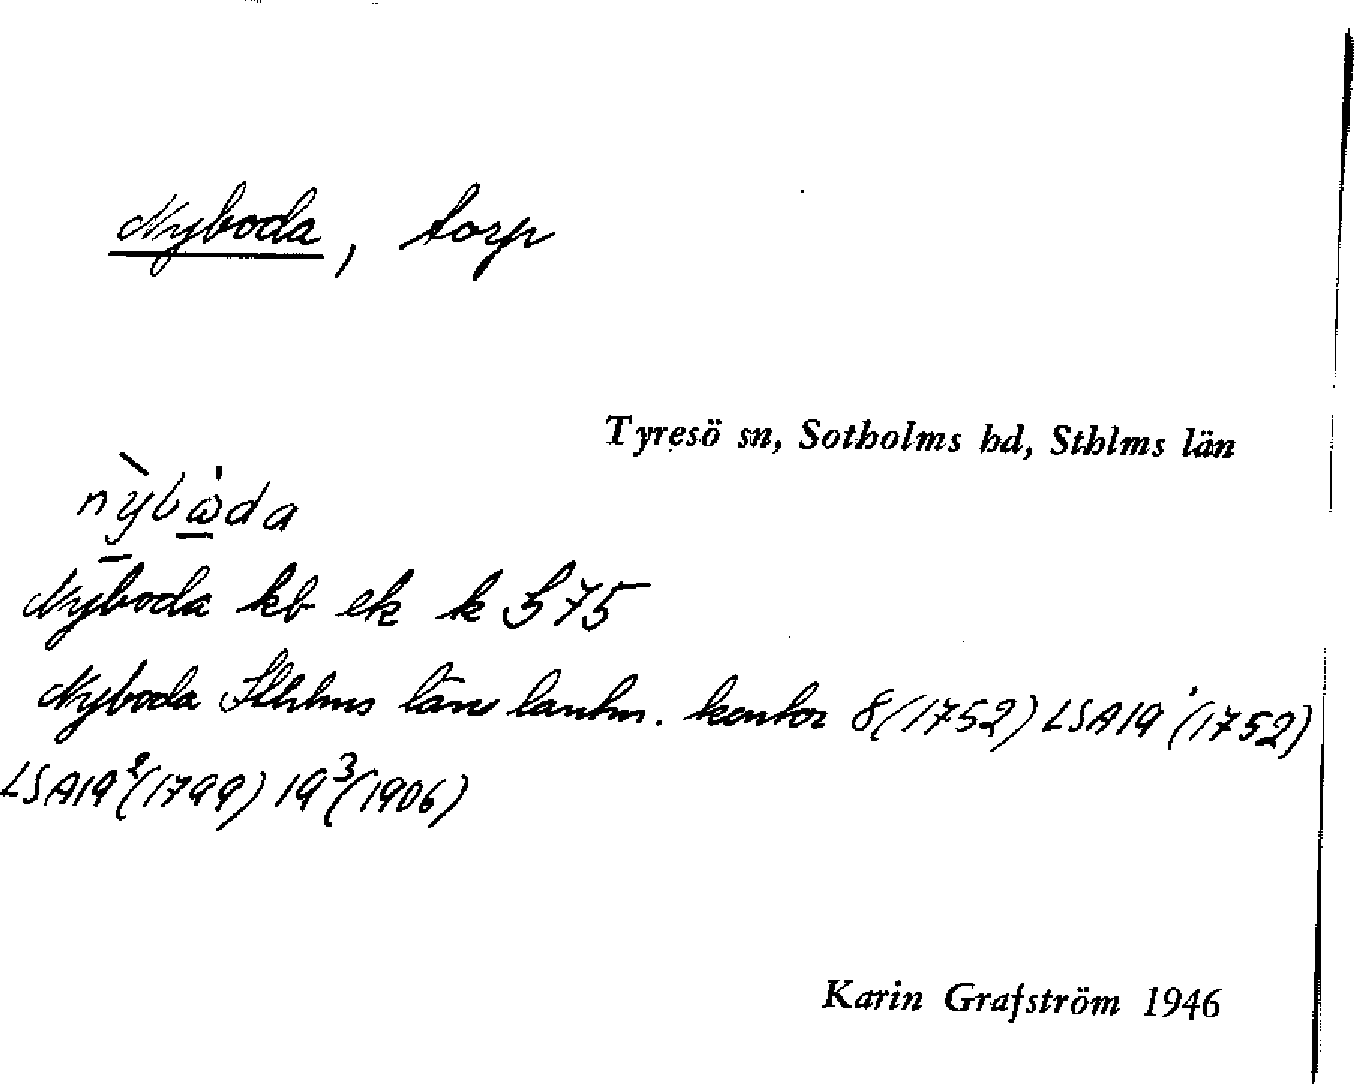 Nyboda, torp
Tyresö sn, Sotholms hd, Sthlms län
nỳbω̇da
Nyboda kb ek k S 75
Nyboda Sthlms läns lantm. kontor 8 (1752) LSA 19¹ (1752)
LSA 19² (1799) 19³ (1906)
Karin Grafström 1946